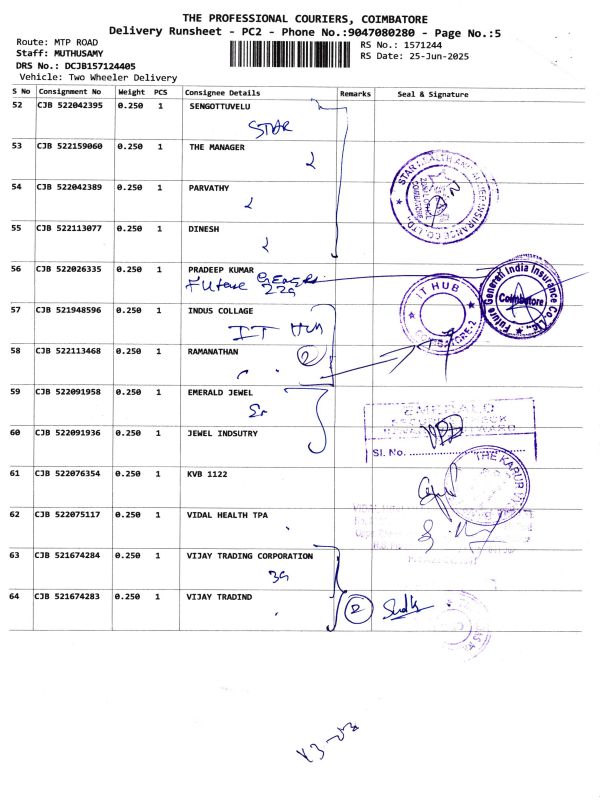 THE PROFESSIONAL COURIERS, COIMBATORE
Delivery Runsheet - PC2 - Phone No.:9047080280 - Page No.:5
Route: MTP ROAD
RS No.: 1571244
Staff: MUTHUSAMY
RS Date: 25-Jun-2025
DRS No.: DCJB157124405
Vehicle: Two Wheeler Delivery
S No Consignment No Weight PCS Consignee Details Remarks Seal & Signature
52 CJB 522042395 0.250 1 SENGOTTUVELU
STAR
53 CJB 522159060 0.250 1 THE MANAGER
54 CJB 522042389 0.250 1 PARVATHY
STAR HEALTH AND INSURANCE CO. LTD.
55 CJB 522113077 0.250 1 DINESH
56 CJB 522026335 0.250 1 PRADEEP KUMAR
Future
Future Generali India Insurance Co. Ltd.
Coimbatore
57 CJB 521948596 0.250 1 INDUS COLLAGE
IT Hub
IT HUB
58 CJB 522113468 0.250 1 RAMANATHAN
2
59 CJB 522091958 0.250 1 EMERALD JEWEL
EMERALD
60 CJB 522091936 0.250 1 JEWEL INDSUTRY
Sl. No.
61 CJB 522076354 0.250 1 KVB 1122
THE KARUR
62 CJB 522075117 0.250 1 VIDAL HEALTH TPA
63 CJB 521674284 0.250 1 VIJAY TRADING CORPORATION
64 CJB 521674283 0.250 1 VIJAY TRADIND
2